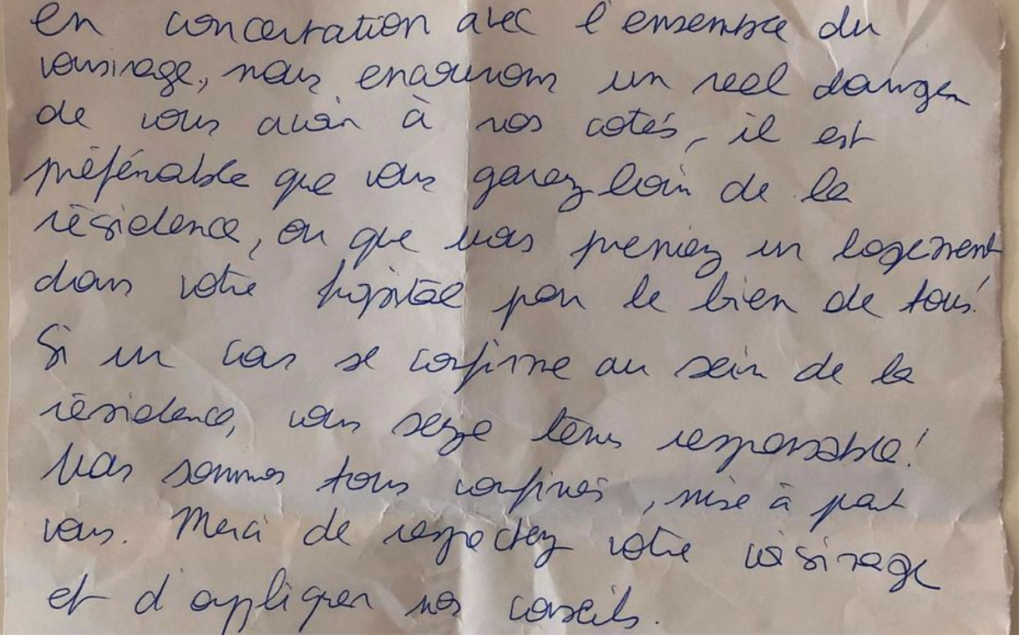 en concertation avec l'ensemble du
voisinage, nous encourons un réel danger
de vous avoir à nos cotés, il est
préférable que vous garez loin de la
résidence, ou que vous preniez un logement
dans votre hôpital pour le bien de tous!
Si un cas se confirme au sein de la
résidence, vous serze tenus responsable!
Nous sommes tous confinés, mise à part
vous. Merci de respectez votre voisinage
et d'appliquer nos conseils.